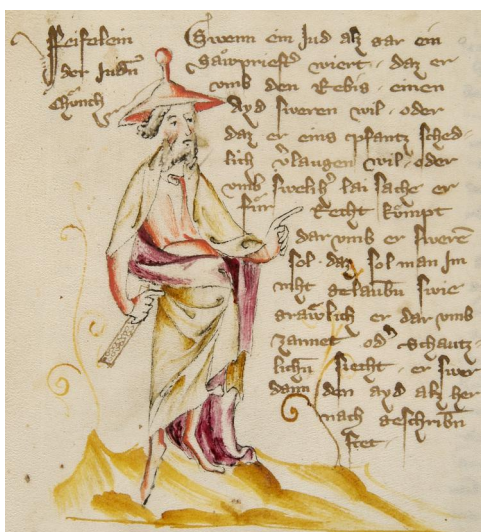 Feifelein
der Judn̄
Chūnch
Swenn ein Jud alz gar ein
gauwpriester wiert daz er
vmb den Rebis einen
Ayd sweren wil oder
daz er eins pfantz sched
lich vlaugen wil oder
vmb swelich lai sache er
für Recht kompt
dar vmb er swerē
sol daz sol man im
niht gelaubn̄ swie
graŵlich er dar vmb
zannet od schautz
lichn̄ siecht er swer
dann den ayd alz her
nach geschribn̄
stet